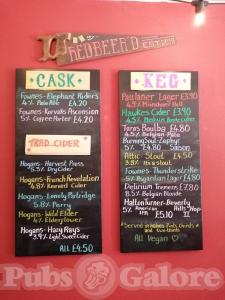 REDBEER'D
CASK
Fownes-Elephant Riders
4% Pale Ale £4.20
Fownes-Korvaks Ascension
5% Coffee Porter £4.20
TRAD CIDER
Hogans- Harvest Press
Dry Cider
Hogans-French Revelation
4.8% Keeved Cider
Hogans-Lonely Partridge
5.8% Perry
Hogans-Wild Elder
4% Elderflower
Hogans-Hazy Rays
Cider
All £4.50
KEG
Paulaner Lager £3.90
4.9% Münchner Hell
Hawkes Cider £3.90
Taras Boulba £4.80
4.5% Belgian Pale
Burning Soul-Zephyr
5% £4.80 Saison
Attic-Stout £4.50
3.8% Stout
Fownes-Thunderstrike
Lager £4.50
Delirium Tremens £7.80
8.5% Belgian Blond
Halton Turner-Beverly
5% American IPA
£5.10
Served in
All Vegan
Pubs Galore